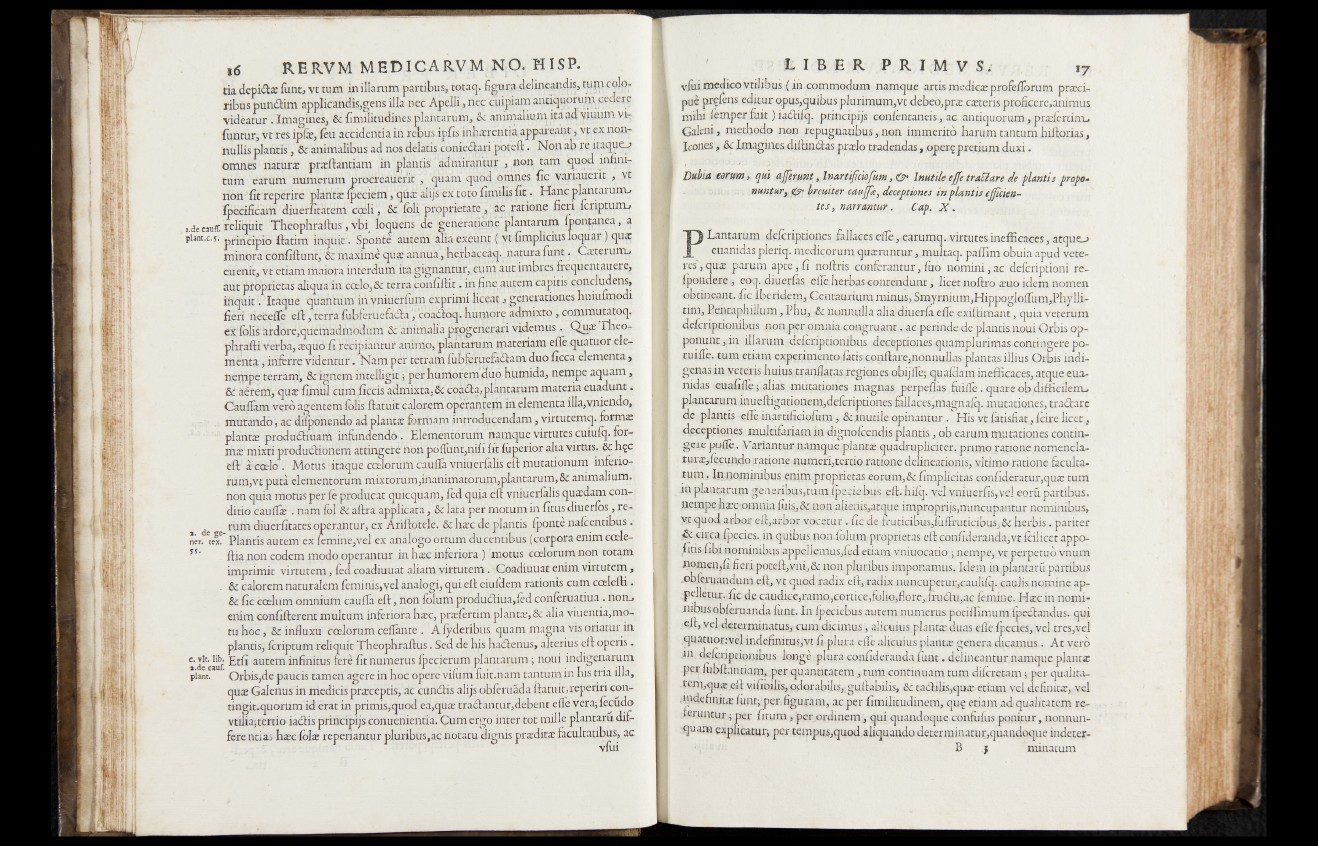 16 RERVM MEDICARVM NO. HISP.
tia depictæ sunt, vt tum in illarum partibus, totaq. figura delineandis, tum colo-
ribus punctim applicandis,gens illa nec Apelli, nec cuipiam antiquorum cedere
videatur. Imagines, & similitudines plantarum, & animalium ita ad viuum vi-
suntur, vt res ipsæ, seu accidentia in rebus ipsis inhærentia appareant, vt ex non-
nullis plantis, & animalibus ad nos delatis coniectari potest. Non ab re itaque
omnes naturæ præstantiam in plantis admirantur, non tam quod infini-
tum earum numerum procreauerit, quam quod omnes sic variauerit, vt
non sit reperire plantæ speciem, quæ alijs ex toto similis sit. Hanc plantarum
specificam diuersitatem cœli, & soli proprietate, ac ratione fieri scriptum
1.de causs. reliquit Theophrastus, vbi loquens de generatione plantarum spontanea, a
plant.c.5. principio statim inquit. Sponte autem alia exeunt (vt simplicius loquar) quæ
minora consistunt, & maximè quæ annua, herbaceaq. natura sunt. Cæterum
euenit, vt etiam maiora interdum ita gignantur, cum aut imbres frequentauere,
aut proprietas aliqua in cœlo,& terra consistit. in fine autem capitis concludens,
inquit. Itaque quantum in vniuersum exprimi liceat, generationes huiusmodi
fieri necesse est, terra subseruefacta, coactoq. humore admixto, commutatoq.
ex solis ardore,quemadmodum & animalia progenerari videmus. Quæ Theo-
phrasti verba, æquo si recipiantur animo, plantarum materiam esse quatuor ele-
menta, inferre videntur. Nam per terram subseruefactam duo sicca elementa,
nempe terram, & ignem intelligit; per humorem duo humida, nempe aquam,
& aërem, quæ simul cum siccis admixta,& coacta,plantarum materia euadunt.
Caussam verò agentem solis statuit calorem operantem in elementa illa,vniendo,
mutando, ac disponendo ad plantæ formam introducendam, virtutemq. formæ
plantæ productiuam infundendo. Elementorum namque virtutes cuiusq. for-
mæ mixti productionem attingere non possunt,nisi sit superior alia virtus. & hęc
est à cœlo. Motus itaque cœlorum caussa vniuersalis est mutationum inferio-
rum,vt putà elementorum mixtorum,inanimatorum,plantarum,& animalium.
non quia motus per se producat quicquam, sed quia est vniuersalis quædam con-
ditio caussæ. nam sol & astra applicata, & lata per motum in situs diuersos, re-
2. de ge- rum diuersitates operantur, ex Aristotele. & hæc de plantis spontè nascentibus.
ner. tex. Plantis autem ex semine,vel ex analogo ortum ducentibus (corpora enim cœle-
55. stia non eodem modo operantur in hæc inferiora) motus cœlorum non totam
imprimit virtutem, sed coadiuuat aliam virtutem. Coadiuuat enim virtutem,
& calorem naturalem seminis,vel analogi, qui est eiusdem rationis cum cœlesti.
& sic cœlum omnium caussa est, non solum productiua,sed conseruatiua. non
enim consisterent multum inferiora hæc, præsertim plantæ,& alia viuentia,mo-
tu hoc, & influxu cœlorum cessante. A syderibus quam magna vis oriatur in
plantis, scriptum reliquit Theophrastus. Sed de his hactenus, alterius est operis.
c. vlt. lib. Etsi autem infinitus ferè sit numerus specierum plantarum; noui indigenarum
2.de caus. Orbis,de paucis tamen agere in hoc opere visum fuit.nam tantum in his tria illa,
plant. quæ Galenus in medicis præceptis, ac cunctis alijs obseruãda statuit,reperiri con-
tingit.quorum id erat in primis,quod ea,quæ tractantur,debent esse vera; secũdo
vtilia;tertio iactis principijs conuenientia. Cum ergo inter tot mille plantarũ dif-
ferentias hæc solæ reperiantur pluribus,ac notatu dignis præditæ facultatibus, ac
vsui
LIBER PRIMVS. 17
vsui medico vtilibus (in commodum namque artis medicæ professorum præci-
puè pręsens editur opus,quibus plurimum,vt debeo,præ cæteris proficere,animus
mihi semper fuit) iactisq. principijs consentaneis, ac antiquorum, præsertim
Galeni, methodo non repugnatibus, non immeritò harum tantum historias,
Icones, & Imagines distinctas prælo tradendas, operę pretium duxi.
Dubia eorum, qui asserunt, Inartificiosum, & Inutile esse tractare de plantis propo-
nuntur, & breuiter caussæ, deceptiones in plantis efficien-
tes, narrantur. Cap. X.
PLantarum descriptiones fallaces esse, earumq. virtutes inefficaces, atque
euanidas pleriq. medicorum quæruntur, multaq. passim obuia apud vete-
res, quæ parum apte, si nostris conferantur, suo nomini, ac descriptioni re-
spondere, eoq. diuersas esse herbas contendunt, licet nostro æuo idem nomen
obtineant. sic Iberidem, Centaurium minus, Smyrnium,Hippoglossum,Phylli-
tim, Pentaphillum, Phu, & nonnulla alia diuersa esse existimant, quia veterum
descriptionibus non per omnia congruant. ac perinde de plantis noui Orbis op-
ponunt, in illarum descriptionibus deceptiones quamplurimas contingere po-
tuisse. tum etiam experimento satis constare,nonnullas plantas illius Orbis indi-
genas in veteris huius translatas regiones obijsse; quasdam inefficaces, atque eua-
nidas euasisse; alias mutationes magnas perpessas fuisse. quare ob difficilem
plantarum inuestigationem,descriptiones fallaces,magnasq. mutationes, tractare
de plantis esse inartificiosum, & inutile opinantur. His vt satisfiat, scire licet,
deceptiones multifariam in dignoscendis plantis, ob earum mutationes contin-
gere posse. Variantur namque plantæ quadrupliciter. primo ratione nomencla-
turæ,secundo ratione numeri,tertio ratione delineationis, vltimo ratione faculta-
tum. In nominibus enim proprietas eorum,& simplicitas consideratur,quæ tum
in plantarum generibus,tum speciebus est. hisq. vel vniuersis,vel eorũ partibus.
nempe hæc omnia suis,& non alienis,atque improprijs,nuncupantur nominibus,
vt quod arbor est,arbor vocetur. sic de fruticibus,suffruticibus,& herbis. pariter
& circa species. in quibus non solum proprietas est consideranda,vt scilicet appo-
sitis sibi nominibus appellemus,sed etiam vniuocatio; nempe, vt perpetuò vnum
nomen,si fieri potest,vni,& non pluribus imponamus. Idem in plantarũ partibus
obseruandum est, vt quod radix est, radix nuncupetur,caulisq. caulis nomine ap-
pelletur. sic de caudice,ramo,cortice,folio,flore, fructu,ac semine. Hæc in nomi-
nibus obseruanda sunt. In speciebus autem numerus potissimum spectandus. qui
est, vel determinatus, cum dicimus, alicuius plantæ duas esse species, vel tres,vel
quatuor:vel indefinitus,vt si plura esse alicuius plantæ genera dicamus. At verò
in descriptionibus longè plura consideranda sunt. delineantur namque plantæ
per substantiam, per quantitatem, tum continuam tum discretam; per qualita-
tem,quæ est visibilis, odorabilis, gustabilis, & tactilis,quæ etiam vel definitæ, vel
indefinitæ sunt; per figuram, ac per similitudinem, quę etiam ad qualitatem re-
feruntur; per situm, per ordinem, qui quandoque confusus ponitur, nonnun-
quam explicatur; per tempus,quod aliquando determinatur,quandoque indeter-
B 3 minatum